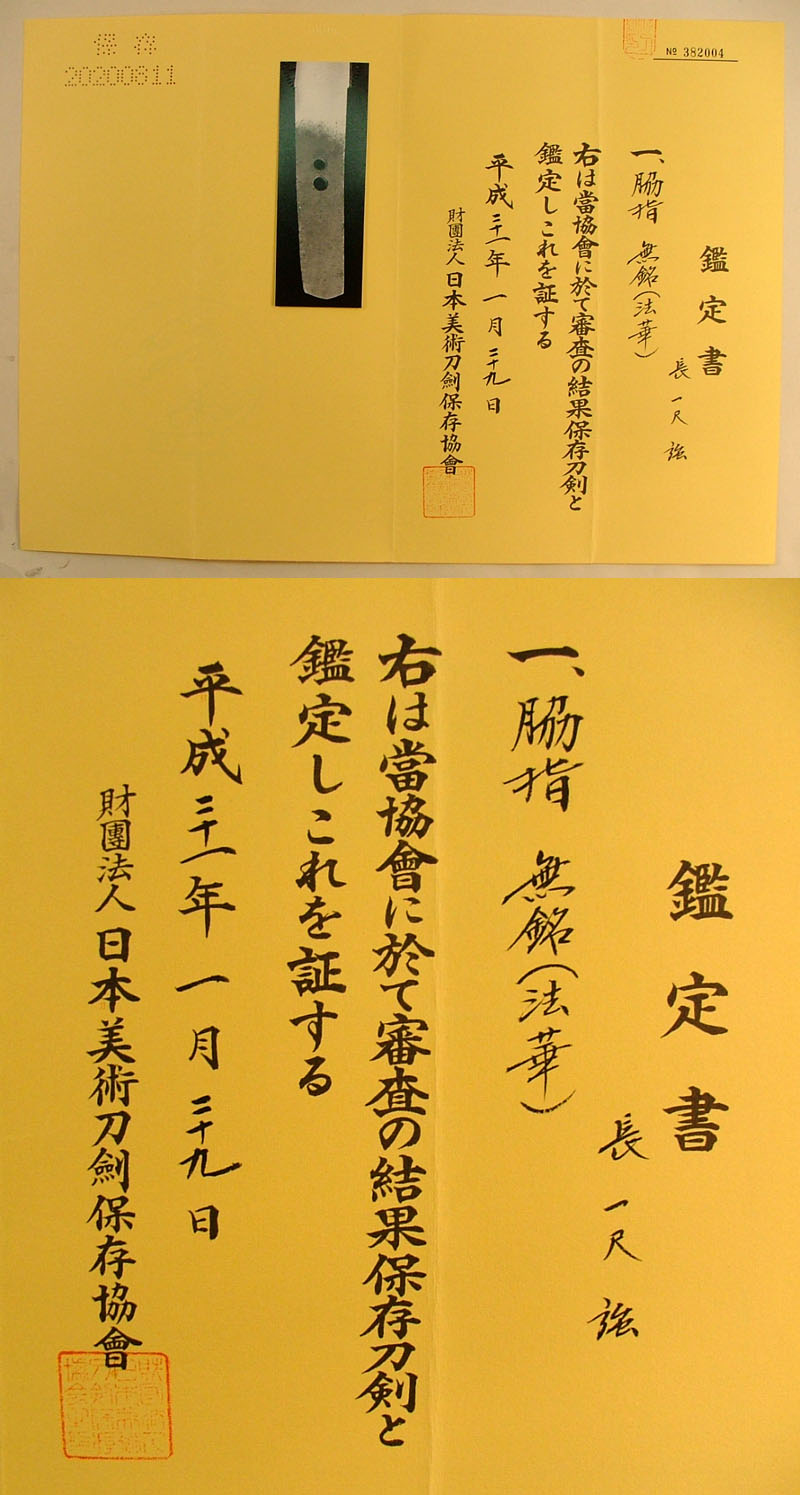 保存
20200611
№ 382004
鑑定書
一、脇指 無銘(法華)
長 一尺 強
右は當協會に於て審査の結果保存刀剣と
鑑定しこれを証する
平成 三十一年 一月 二十九日
財團法人 日本美術刀劍保存協會
鑑定書
一、脇指 無銘(法華)
長 一尺 強
右は當協會に於て審査の結果保存刀剣と
鑑定しこれを証する
平成 三十一年 一月 二十九日
財團法人 日本美術刀劍保存協會